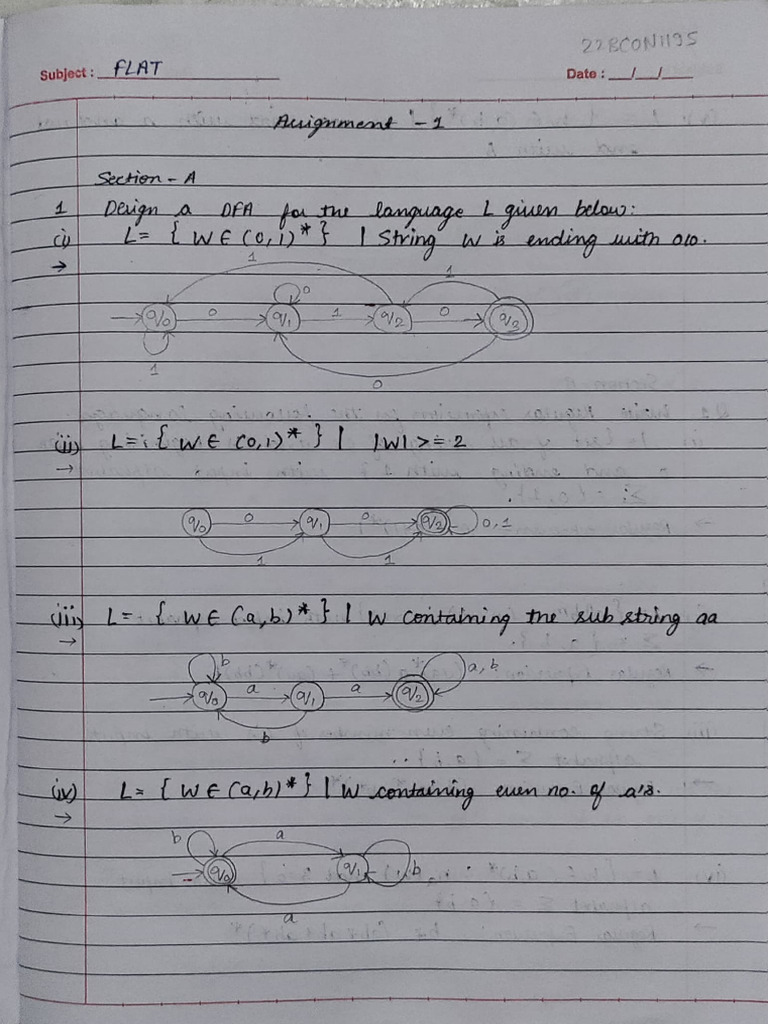 22BCON1195
Subject : FLAT Date : __/__/__
Assignment - 1
Section - A
1 Design a DFA for the language L given below:
(i) L= { W ∈ (0,1)* } | String W is ending with 010.
→
1 1
0
q0 0 q1 1 q2 0 q3
1
0
(ii) L= { W ∈ (0,1)* } | |W| >= 2
→
q0 0 q1 0 q2 0,1
1 1
(iii) L= { W ∈ (a,b)* } | W containing the sub string aa
→
b a,b
q0 a q1 a q2
b
(iv) L= { W ∈ (a,b)* } | W containing even no. of a's.
→
b a
q0 q1 b
a